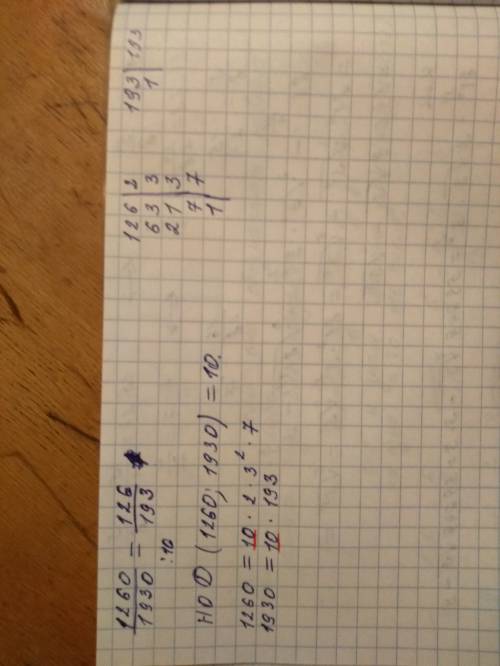 1260/1930 = 126/193
:10
НОД (1260; 1930) = 10.
1260 = 10 · 2 · 3² · 7
1930 = 10 · 193
126 | 2
63 | 3
21 | 3
7 | 7
1 |
193 | 193
1 |